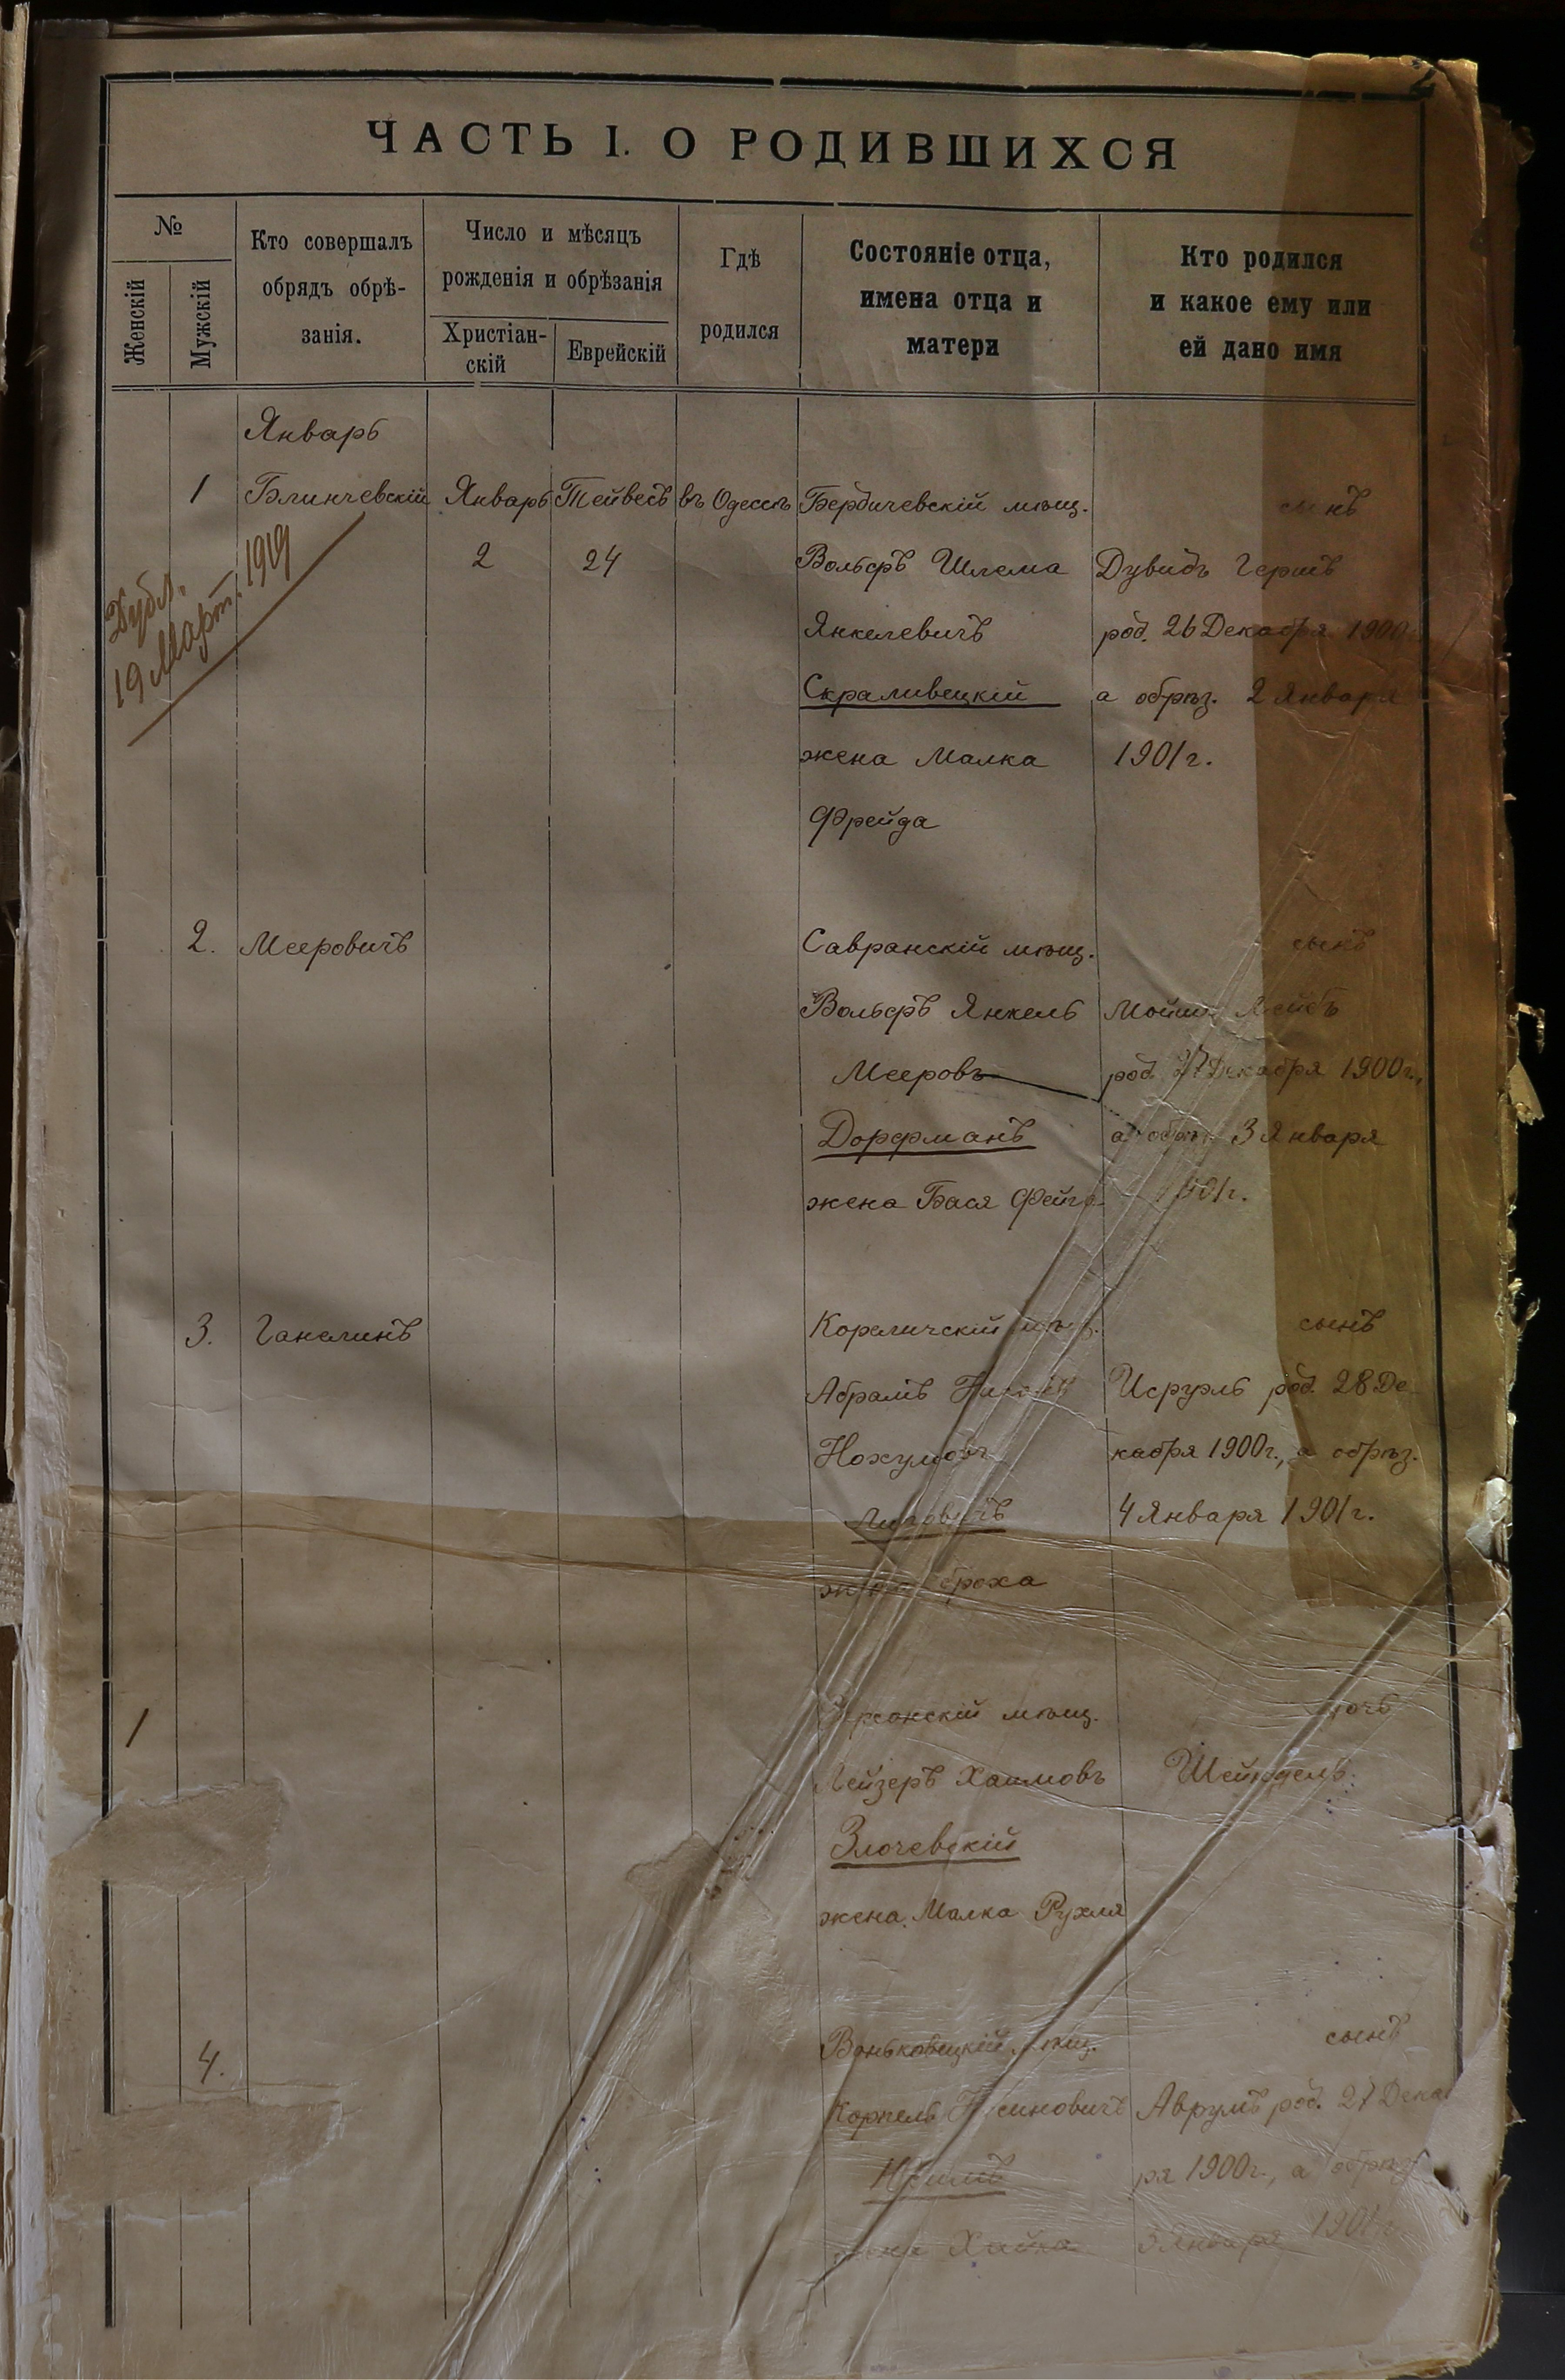 ЧАСТЬ I. О РОДИВШИХСЯ
№
Женскій
Мужскій
Кто совершалъ
обрядъ обрѣ-
занія.
Число и мѣсяцъ
рожденія и обрѣзанія
Христіан-
скій
Еврейскій
Гдѣ
родился
Состояніе отца,
имена отца и
матери
Кто родился
и какое ему или
ей дано имя
Январь
1 Блинчевскій Январь Тейвесъ въ Одессѣ Бердичевскій мѣщ. сынъ
2 24 Вольфъ Шлема Дувидъ Гершъ
Дубл.
19 Март. 1919
Янкелевичъ род. 26 Декабря 1900
Скраливецкій а обрѣз. 2 Января
жена Малка 1901 г.
Фрейда
2. Мееровичъ Савранскій мѣщ. сынъ
Вольфъ Янкель Мойше Лейбъ
Мееровъ род. 27 Декабря 1900 г.,
Дорфманъ а обрѣз. 3 Января
жена Бася Фейга 1901 г.
3. Ганелинъ Кореличскій мѣщ. сынъ
Абрамъ Исруэль род. 28 Де
Нохумовъ кабря 1900 г., а обрѣз.
4 Января 1901 г.
жена Броха
1 Херсонскій мѣщ. дочь
Лейзеръ Хаимовъ Шейндель.
Злочевскій
жена Малка Рухля
4. Воньковецкій мѣщ. сынъ
Копель Нусиновичъ Аврумъ род. 27 Декаб
ря 1900 г., а обрѣз.
жена Хайка 3 Января 1901 г.